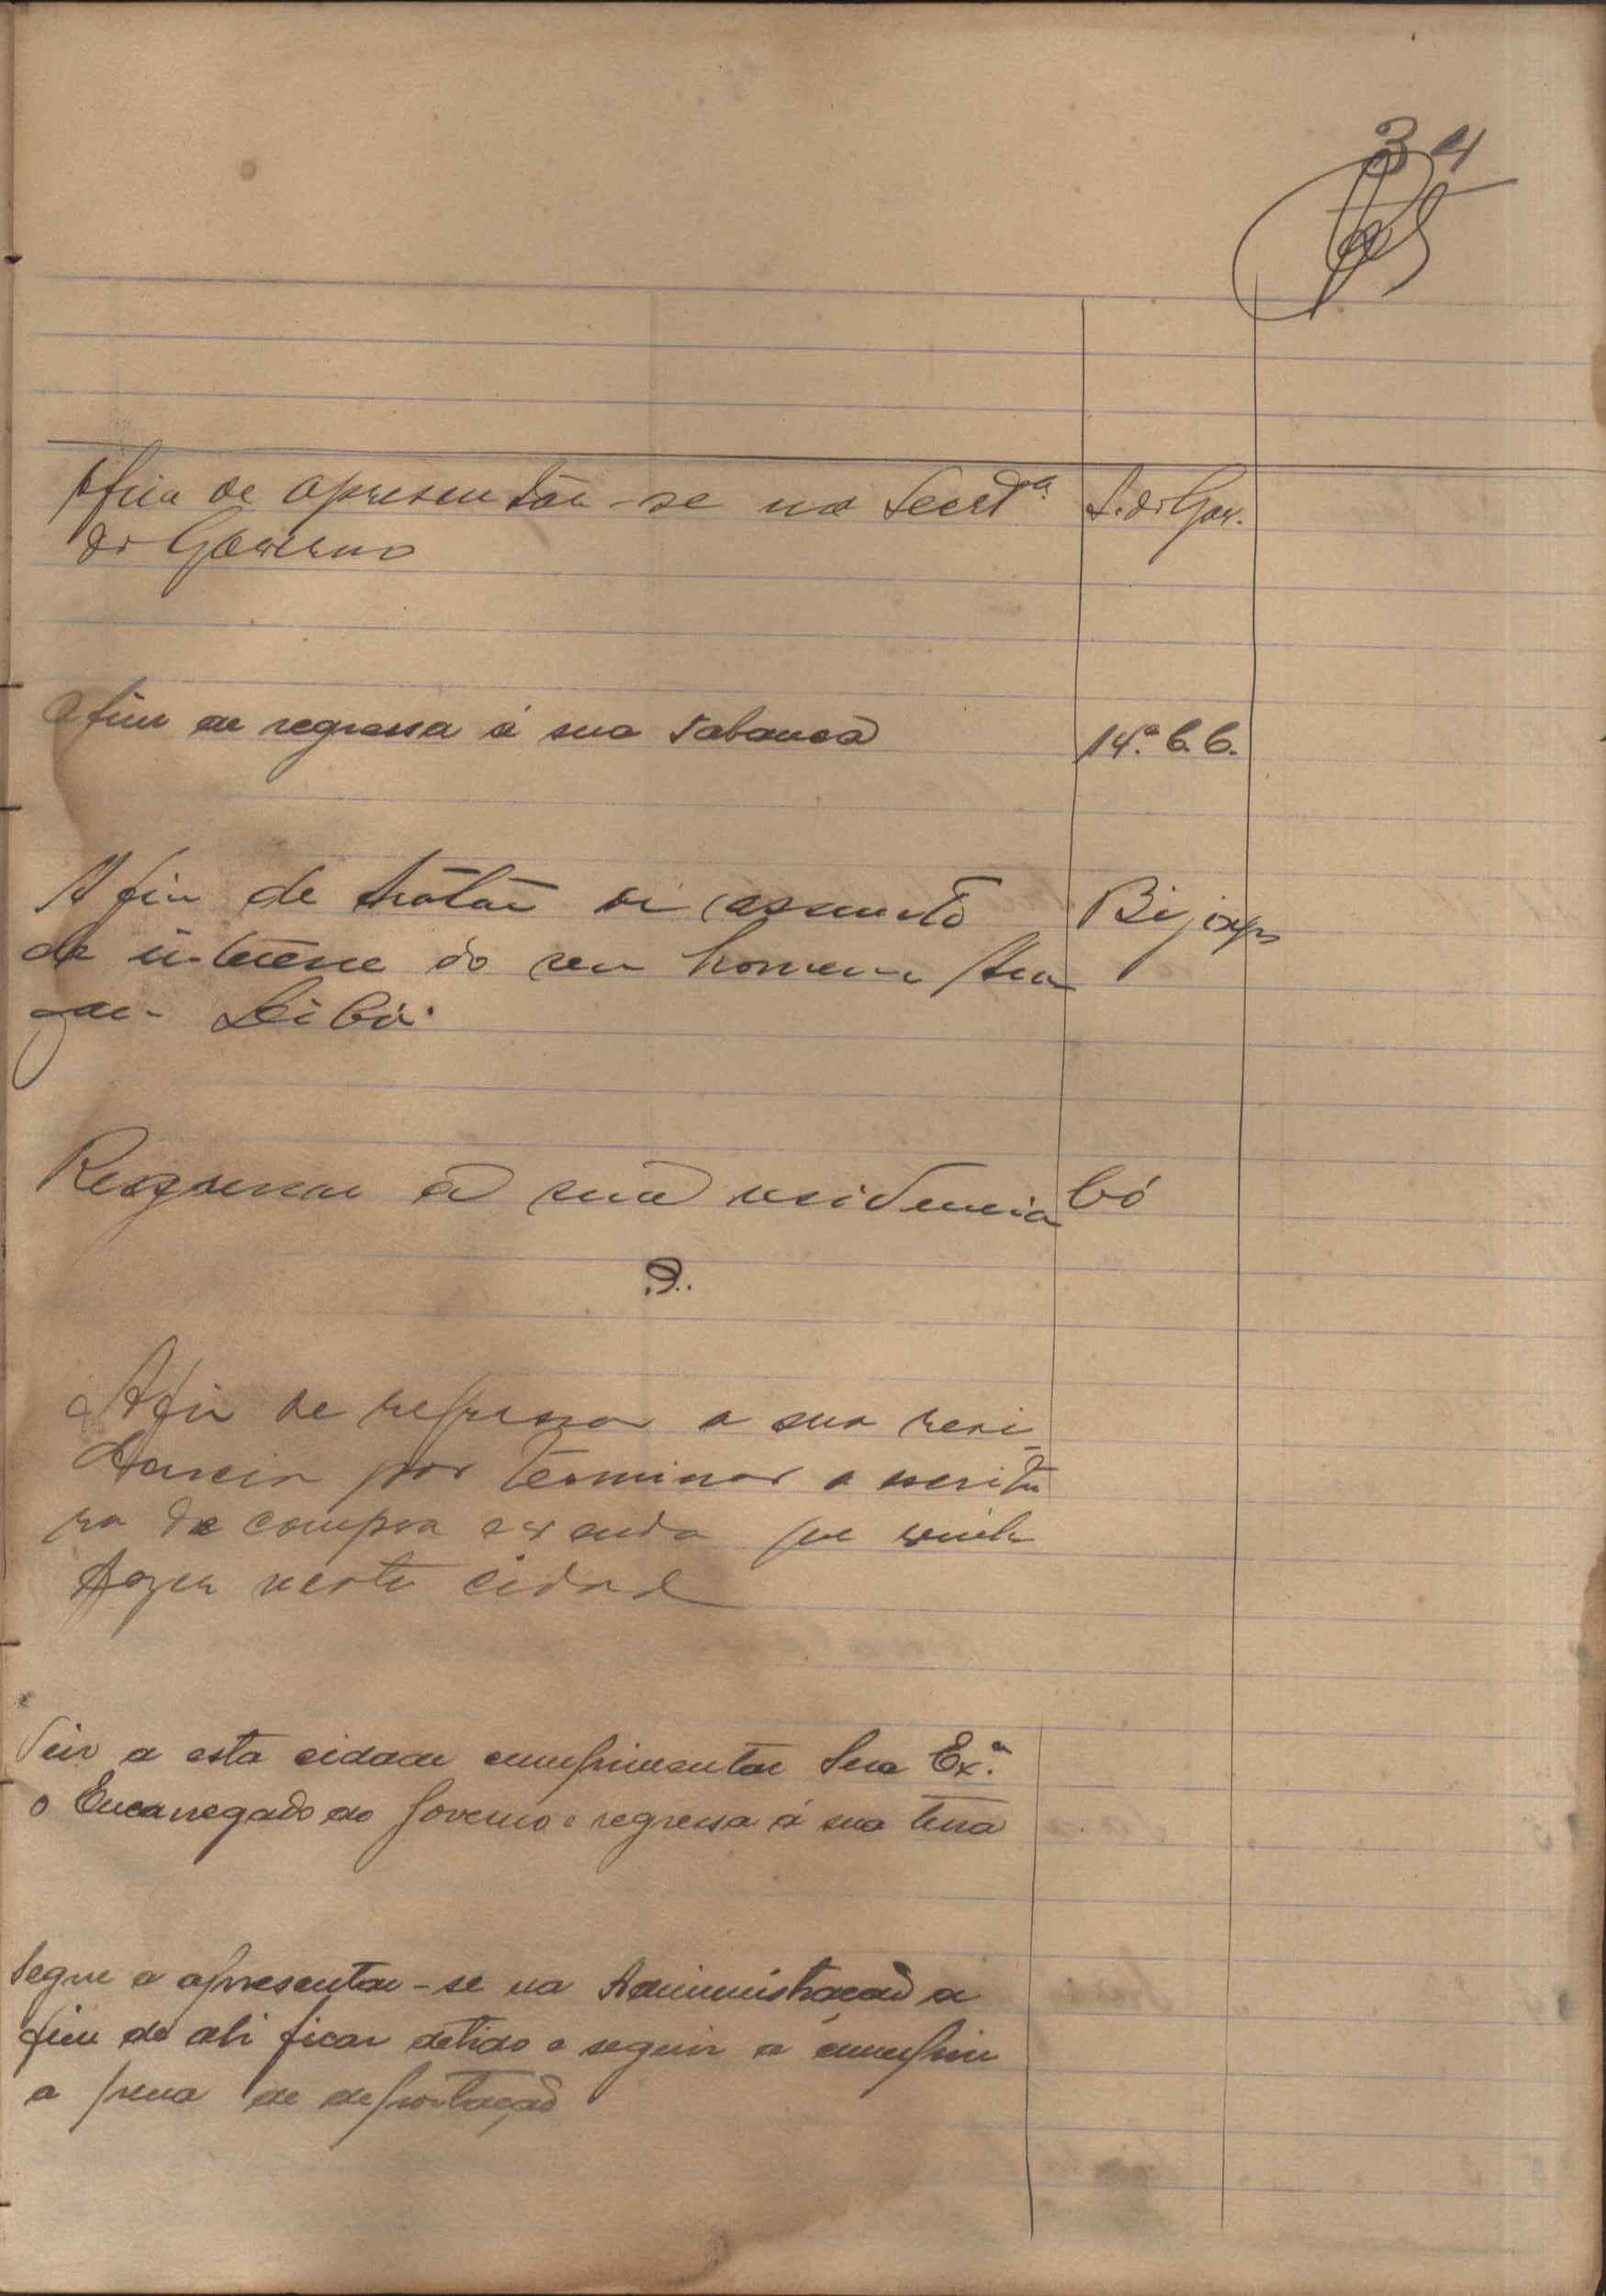 34
Afim de apresentar-se na Secret.ª S. do Gov.
do Governo
Afim de regressa á sua tabanca 14.ª C. C.
A fim de tratar de assunto Bijagos
de interesse do seu homem
Regressar á sua residencia Có
Afim de regressar a sua resi-
dencia por terminar a escritu
ra de compra e venda que veiu
fazer nesta cidade
Veiu a esta cidade cumprimentar Sua Ex.ª
o Encarregado do Governo e regressa á sua terra
Segue a apresentar-se na Administração a
fim de ali ficar detido e seguir a cumprir
a pena de deportação